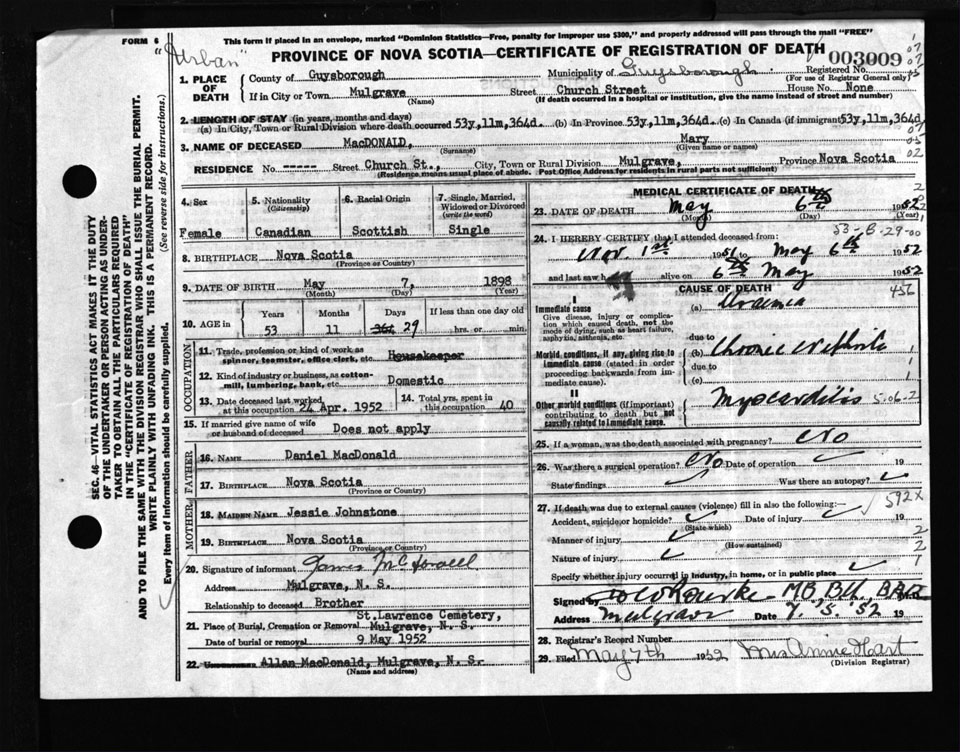 FORM 6
This form if placed in an envelope, marked "Dominion Statistics—Free, penalty for improper use $300," and properly addressed will pass through the mail "FREE"
"Urban"
PROVINCE OF NOVA SCOTIA—CERTIFICATE OF REGISTRATION OF DEATH
003009
SEC. 46—VITAL STATISTICS ACT MAKES IT THE DUTY
OF THE UNDERTAKER OR PERSON ACTING AS UNDER-
TAKER TO OBTAIN ALL THE PARTICULARS REQUIRED
IN THE "CERTIFICATE OF REGISTRATION OF DEATH"
AND TO FILE THE SAME WITH THE DIVISION REGISTRAR WHO SHALL ISSUE THE BURIAL PERMIT.
WRITE PLAINLY WITH UNFADING INK. THIS IS A PERMANENT RECORD.
Every item of information should be carefully supplied. (See reverse side for instructions.)
1. PLACE OF DEATH
County of Guysborough Municipality of Guysborough Registered No.
(For use of Registrar General only)
If in City or Town Mulgrave Street Church Street House No. None
(Name) (If death occurred in a hospital or institution, give the name instead of street and number)
2. LENGTH OF STAY (in years, months and days)
(a) In City, Town or Rural Division where death occurred 53y,11m,364d. (b) In Province 53y,11m,364d. (c) In Canada (if immigrant) 53y,11m,364d
3. NAME OF DECEASED MacDONALD, Mary
(Surname) (Given name or names)
RESIDENCE No. ------ Street Church St., City, Town or Rural Division Mulgrave, Province Nova Scotia
(Residence means usual place of abode. Post Office Address for residents in rural parts not sufficient)
4. Sex 5. Nationality (Citizenship) 6. Racial Origin 7. Single, Married, Widowed or Divorced (write the word)
Female Canadian Scottish Single
8. BIRTHPLACE Nova Scotia
(Province or Country)
9. DATE OF BIRTH May 7, 1898
(Month) (Day) (Year)
10. AGE in Years Months Days If less than one day old
53 11 364 29 hrs. or min.
OCCUPATION
11. Trade, profession or kind of work as spinner, teamster, office clerk, etc. Housekeeper
12. Kind of industry or business, as cotton-mill, lumbering, bank, etc. Domestic
13. Date deceased last worked at this occupation 24 Apr. 1952 14. Total yrs. spent in this occupation 40
15. If married give name of wife or husband of deceased Does not apply
FATHER
16. NAME Daniel MacDonald
17. BIRTHPLACE Nova Scotia
(Province or Country)
MOTHER
18. MAIDEN NAME Jessie Johnstone
19. BIRTHPLACE Nova Scotia
(Province or Country)
20. Signature of informant James
Address Mulgrave, N. S.
Relationship to deceased Brother
21. Place of Burial, Cremation or Removal St.Lawrence Cemetery,
Mulgrave, N. S.
Date of burial or removal 9 May 1952
22. Allan MacDonald, Mulgrave, N. S.
(Name and address)
MEDICAL CERTIFICATE OF DEATH
23. DATE OF DEATH May 6th 1952
(Month) (Day) (Year)
53-B-29-00
24. I HEREBY CERTIFY that I attended deceased from:
Nov 1st 1951 to May 6th 1952
and last saw h alive on 6th May 1952
CAUSE OF DEATH
456
I
Immediate cause (a) Uraemia
Give disease, injury or complication which caused death, not the mode of dying, such as heart failure, asphyxia, asthenia, etc.
due to
Morbid conditions, if any, giving rise to immediate cause (stated in order proceeding backwards from immediate cause). (b) Chronic Nephritis
due to
(c)
II
Other morbid conditions (if important) contributing to death but not causally related to immediate cause. Myocarditis 5.06.2
25. If a woman, was the death associated with pregnancy? No
26. Was there a surgical operation? No Date of operation 19
State findings Was there an autopsy?
27. If death was due to external causes (violence) fill in also the following: 592X
Accident, suicide or homicide? Date of injury 19
(State which)
Manner of injury
(How sustained)
Nature of injury
Specify whether injury occurred in industry, in home, or in public place
Signed by
Address Mulgrave Date 7 '5 '52 19
28. Registrar's Record Number
29. Filed May 7th 1952 Mrs Annie Hart
(Division Registrar)